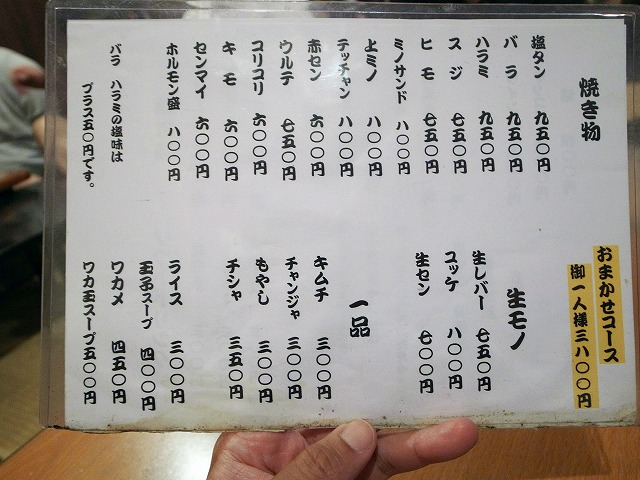 焼き物
塩タン 九五〇円
バラ 九五〇円
ハラミ 九五〇円
スジ 七五〇円
ヒモ 七五〇円
ミノサンド 八〇〇円
上ミノ 八〇〇円
テッチャン 八〇〇円
赤セン 六〇〇円
ウルテ 七五〇円
コリコリ 六〇〇円
キモ 六〇〇円
センマイ 六〇〇円
ホルモン盛 八〇〇円
バラ ハラミの塩味は
プラス五〇円です。
おまかせコース
御一人様三八〇〇円
生モノ
生レバー 七五〇円
ユッケ 八〇〇円
生セン 七〇〇円
一品
キムチ 三〇〇円
チャンジャ 三〇〇円
もやし 三〇〇円
チシャ 三五〇円
ライス 三〇〇円
玉子スープ 四〇〇円
ワカメ 四五〇円
ワカ玉スープ五〇〇円